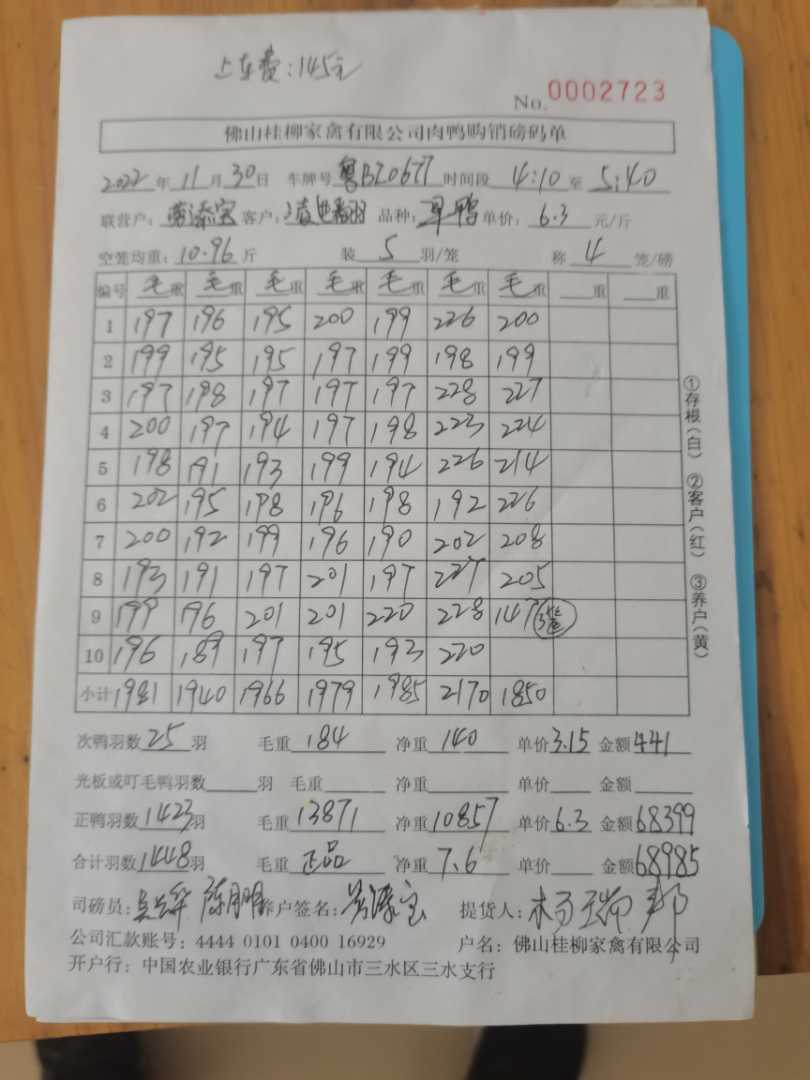 上车费:145元
No. 0002723
佛山桂柳家禽有限公司肉鸭购销磅码单
2022年11月30日 车牌号粤BZ0677时间段4:10至5:40
联营户: 客户: 品种: 鸭 单价:6.3元/斤
空笼均重:10.96斤 装5羽/笼 称4笼/磅
编号 毛重 毛重 毛重 毛重 毛重 毛重 毛重 重 重
1 197 196 195 200 199 226 200
2 199 195 195 197 199 198 199
3 197 198 197 197 197 228 227
4 200 197 194 197 198 223 224
5 198 191 193 199 194 226 214
6 202 195 198 196 198 192 226
7 200 192 199 196 190 202 208
8 193 191 197 201 197 227 205
9 199 196 201 201 220 228 147 3笼
10 196 189 197 195 193 220
小计 1981 1940 1966 1979 1985 2170 1850
①存根(白) ②客户(红) ③养户(黄)
次鸭羽数25羽 毛重184 净重140 单价3.15 金额441
光板或叮毛鸭羽数 羽 毛重 净重 单价 金额
正鸭羽数1423羽 毛重13871 净重10857 单价6.3 金额68399
合计羽数1448羽 毛重正品 净重7.6 单价 金额68985
司磅员: 养户签名: 提货人:
公司汇款账号:4444 0101 0400 16929 户名:佛山桂柳家禽有限公司
开户行:中国农业银行广东省佛山市三水区三水支行